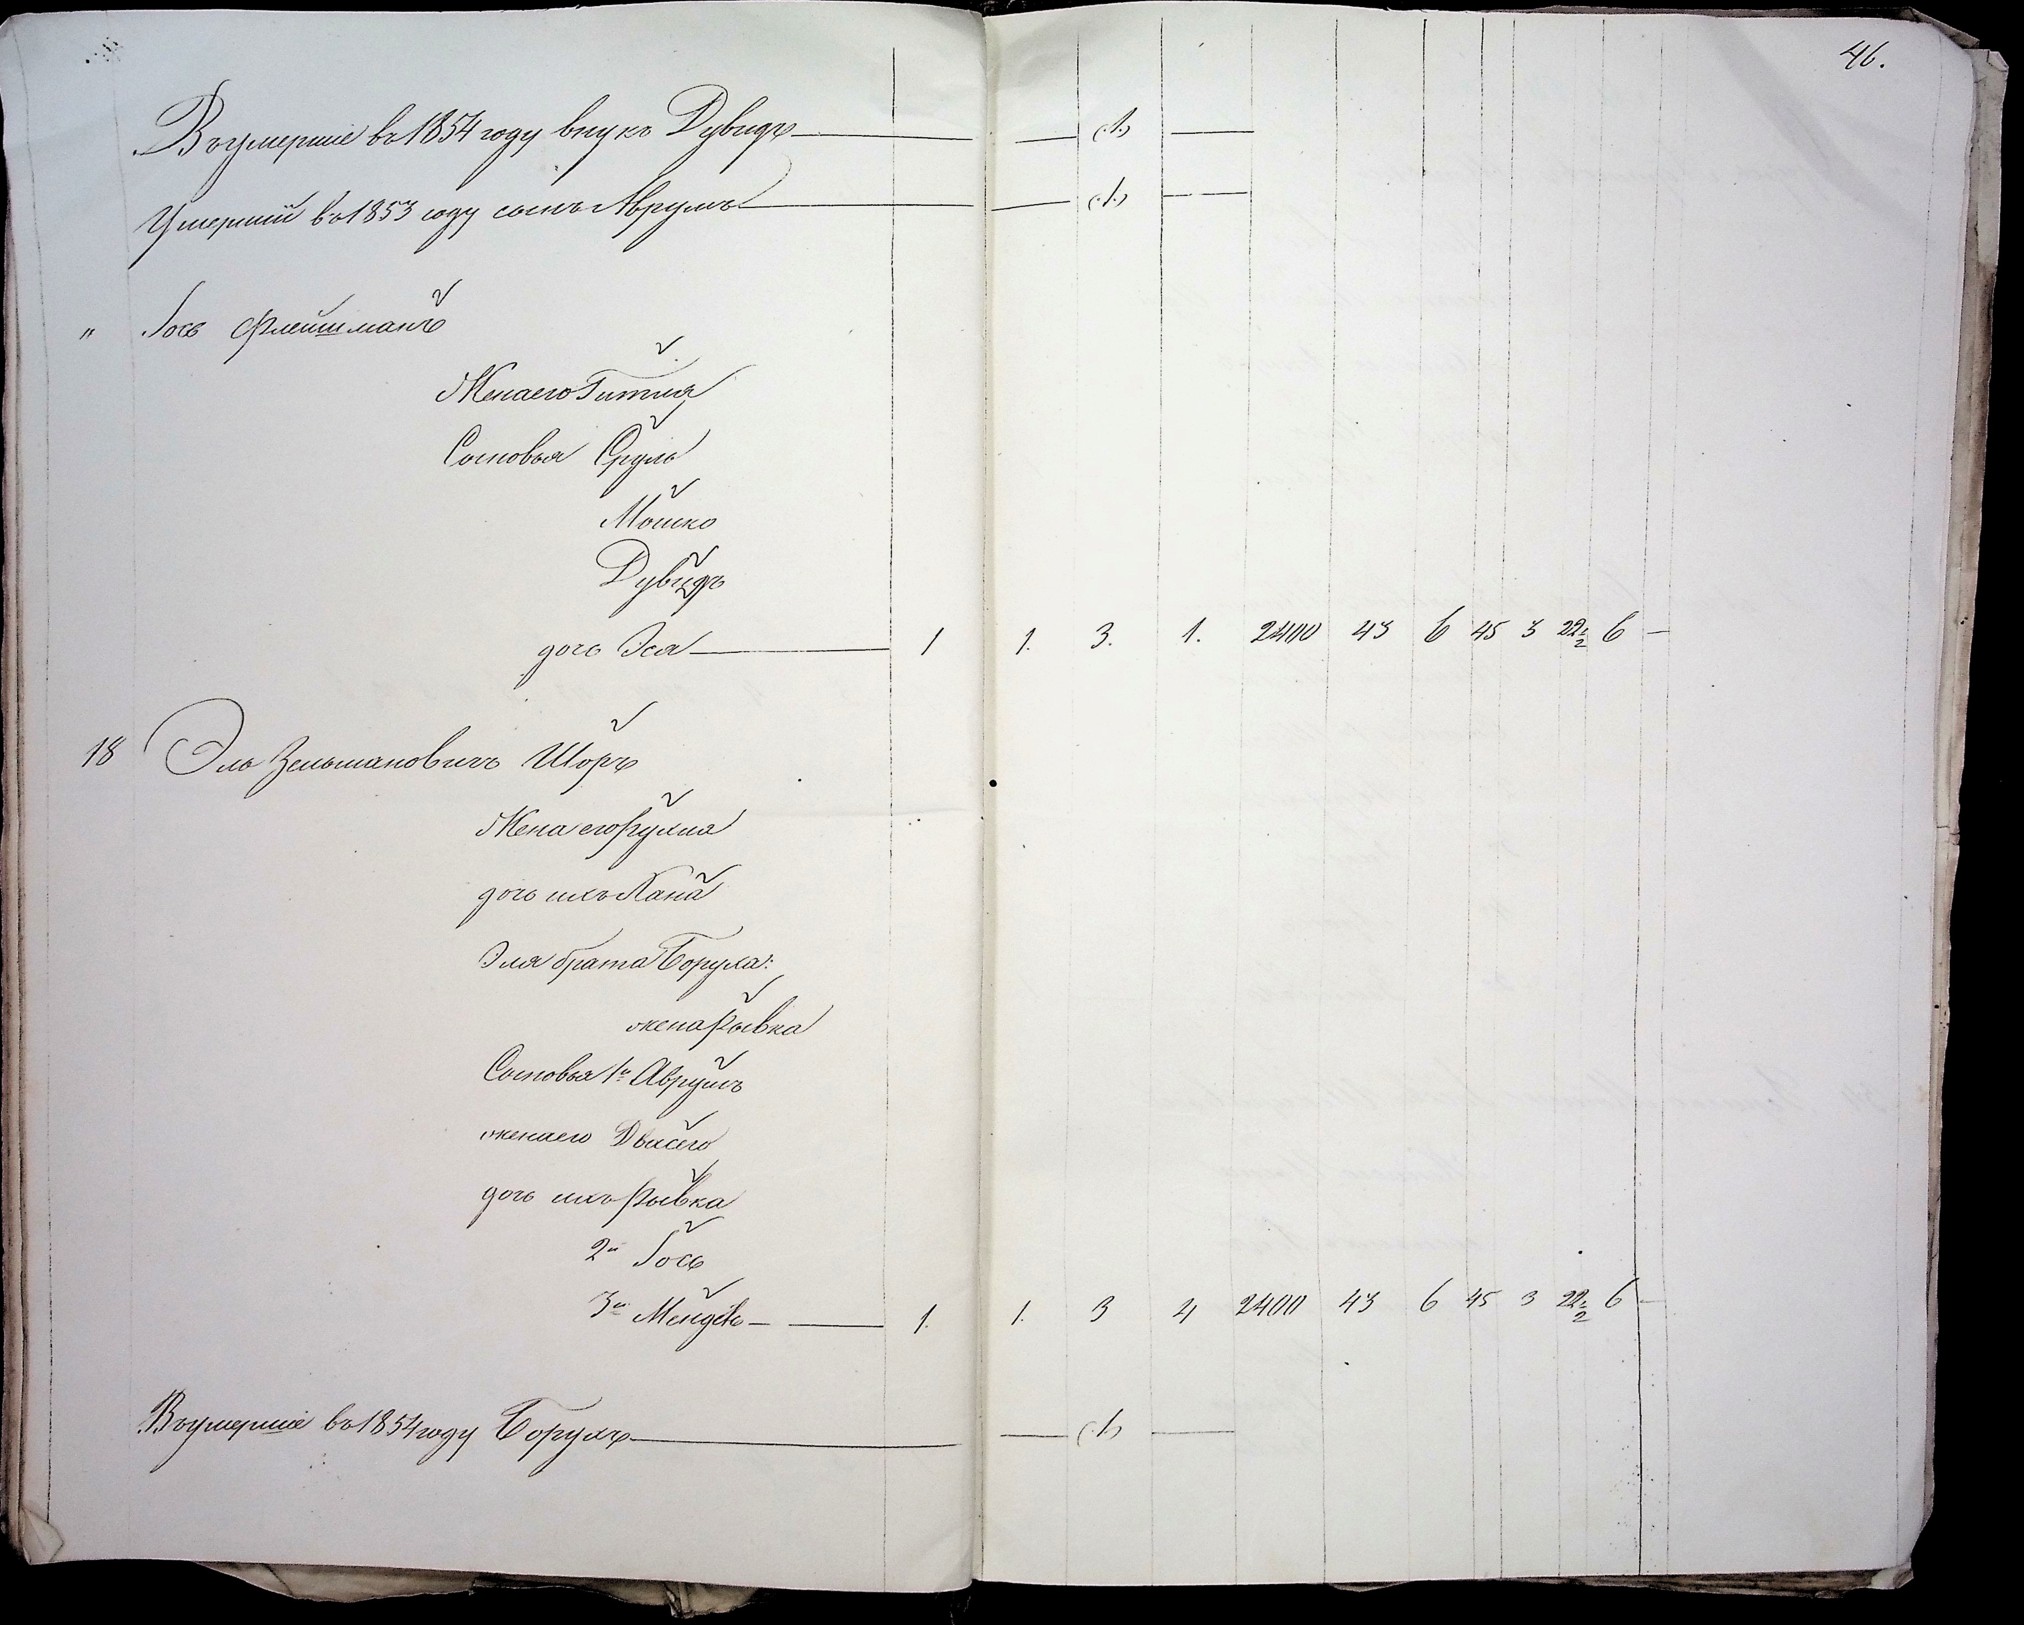 46.
Въ умершіе въ 1854 году внукъ Дувидъ — (1) —
Умершій въ 1853 году сынъ Аврумъ — (1) —
" Іось Флейшманъ
Жена его Гитля
Сыновья Сруль
Мошко
Дувидъ
дочь Эся — 1 1. 3. 1. 2400 43 6 45 3 22½ 6 —
18 Эль Зельмановичъ Шоръ
Жена его Рухля
дочь ихъ Хана
Эля брата Боруха:
жена Рывка
Сыновья 1й Аврумъ
жена его Двысего
дочь ихъ Рывка
2й Іось
3й Мендель — 1. 1. 3 4 2400 43 6 45 3 22½ 6 —
Въ умершіе въ 1854 году Борухъ — (1) —